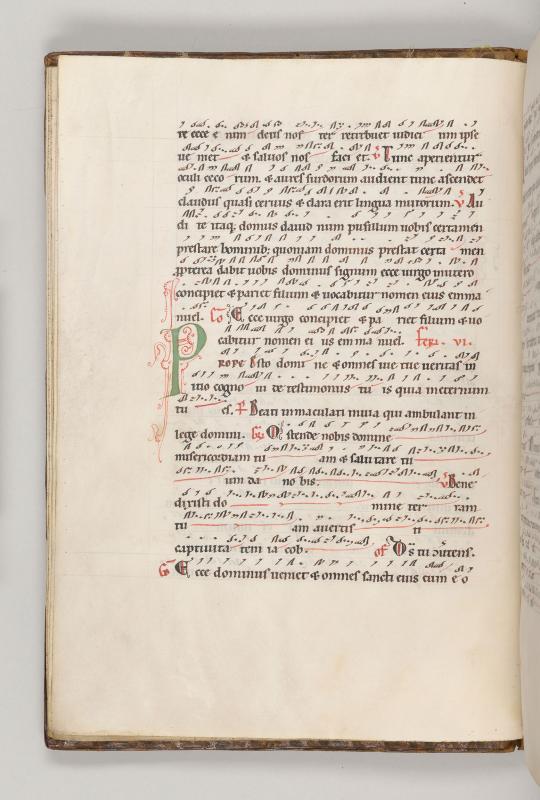 re ecce & nim deus nos ter retribuet iudici um ipse
ue niet & saluos nos faci et. v Tunc aperientur
oculi ceco rum. & aures surdorum audient tunc ascendet
claudus quasi ceruus & clara erit lingua mutorum. v Au
di te itaq; domus dauid num pusillum uobis certamen
prestare hominib; quoniam dominus prestat certa men
ppterea dabit uobis dominus signum ecce uirgo in utero
concipiet & pariet filium & uocabitur nomen eius emma
nuel. Co Ecce uirgo concipiet & pa riet filium & uo
cabitur nomen ei us em ma nuel. feri. vi.
PROPE Esto domi ne & omnes uie tue ueritas in
itio cogno ui de testimoniis tu is quia in eternum
tu es. P Beati inmaculati in uia qui ambulant in
lege domini. Gr Ostende nobis domine
misericordiam tu am & salutare tu
um da no bis. v Bene
dixisti do mine ter ram
tu am auertis ti
captiuita tem ia cob. of Ds tu 9uertens.
Co Ecce dominus ueniet & omnes sancti eius cum e o